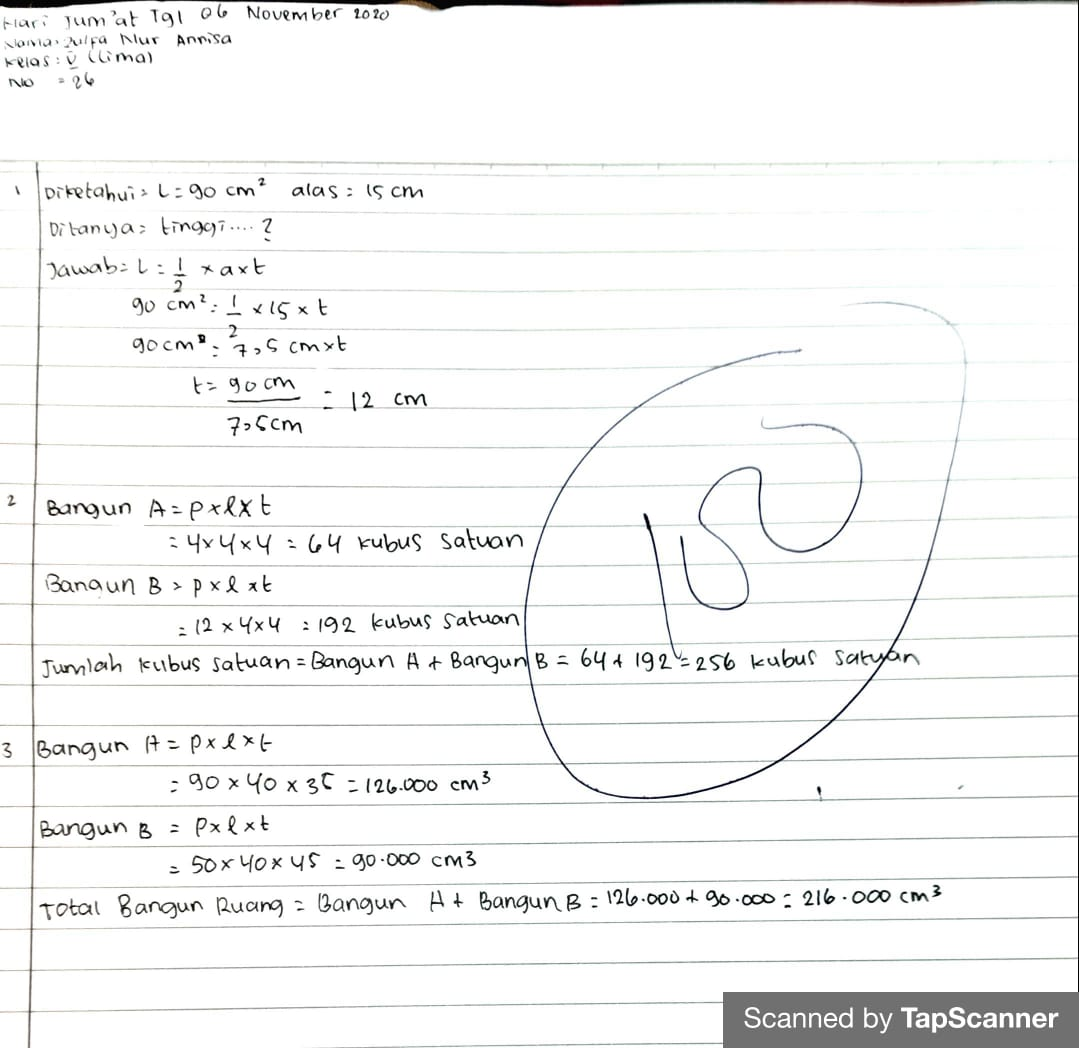 Hari Jum'at Tgl 06 November 2020
Nama: Zulfa Nur Annisa
Kelas : V (lima)
No = 26
1 Diketahui = L = 90 cm² alas = 15 cm
Ditanya = tinggi .... ?
Jawab = L = 1/2 x a x t
90 cm² = 1/2 x 15 x t
90 cm² = 7,5 cm x t
t = 90 cm / 7,5 cm = 12 cm
2 Bangun A = p x l x t
= 4 x 4 x 4 = 64 kubus satuan
Bangun B = p x l x t
= 12 x 4 x 4 = 192 kubus satuan
Jumlah kubus satuan = Bangun A + Bangun B = 64 + 192 = 256 kubus satuan
3 Bangun A = p x l x t
= 90 x 40 x 35 = 126.000 cm³
Bangun B = p x l x t
= 50 x 40 x 45 = 90.000 cm3
Total Bangun Ruang = Bangun A + Bangun B = 126.000 + 90.000 = 216.000 cm³
Scanned by TapScanner